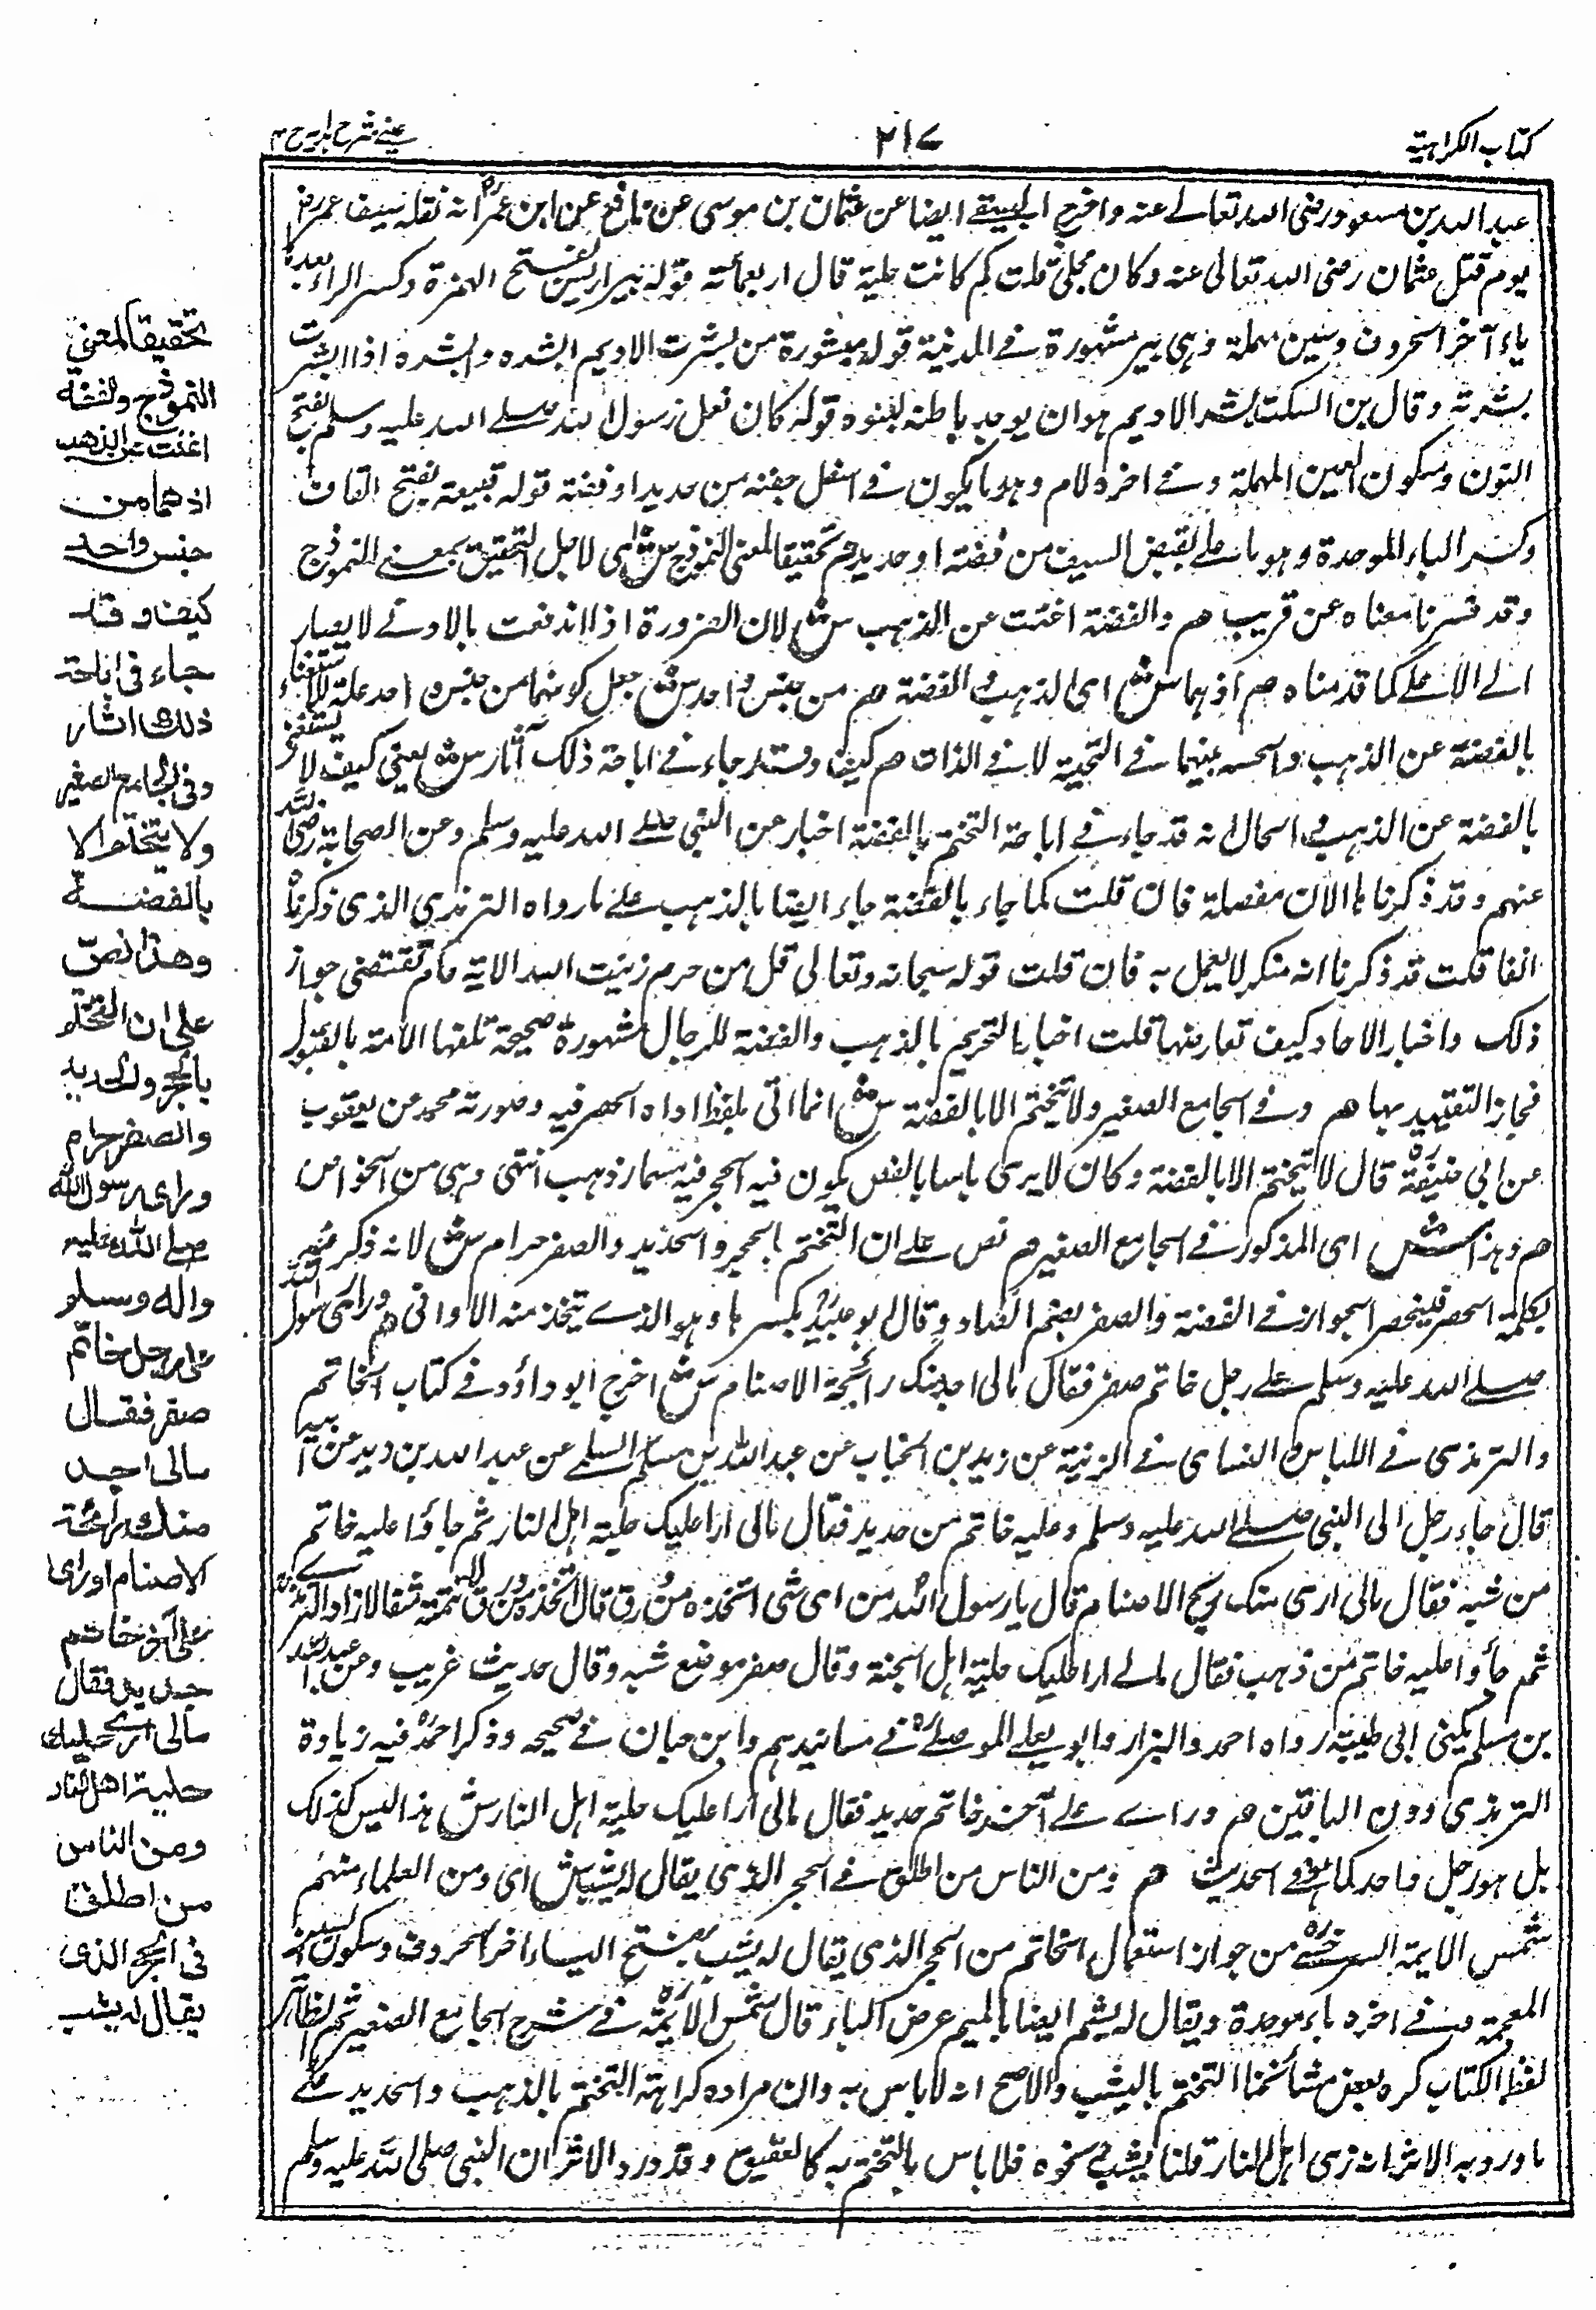 كتاب الكراهية
٢١٤
عيني شرح هدايه ج ٤
عبد الله بن مسعود رضى الله تعالے عنه واخرج البيهقے ايضا عن عثمان بن موسى عن نافع عن ابن عمر انه تقلد سيف عمر رض
يوم قتل عثمان رضى الله تعالى عنه وكان محلى قلت كم كانت حلية قال اربعمائة قوله بير اريس بفتح الهمزة وكسر الراء بعده
ياء آخر الحروف وسين مهملة وهى بير مشهورة فے المدينة قوله مبشورة من بشرت الاديم البشره وابشره اذا ابشرت
بشرته وقال بن السكت بشر الاديم هو ان يوخذ باطنه بشفره قوله كان نعل رسول الله صلے الله عليه وسلم بفتح
النون وسكون العين المهملة وفے اخره لام وهو ما يكون فے اسفل جفنه من حديد او فضة قوله قبيعة بفتح القاف
وكسر الباء الموحدة وهو ما علے مقبض السيف من فضة او حديد هم تحقيقا لمعنى النموذج ش اى لاجل التحقيق بمعنے النموذج
وقد فسرنا معناه عن قريب هم والفضة اغنت عن الذهب ش لان الضرورة اذا اندفعت بالادنے لا يصار
الے الاعلے كما قدمناه هم اذ هما ش اى الذهب والفضة هم من جنس واحد ش جعل كونهما من جنس واحد علة للاستغناء
بالفضة عن الذهب والجنسية بينهما فے الثمنية لا فے الذات هم كيف وقد جاء فے اباحة ذلك آثار ش يعني كيف لا يستغنى
بالفضة عن الذهب والحال انه قد جاء فے اباحة التختم بالفضة اخبار عن النبي صلے الله عليه وسلم وعن الصحابة رضى الله
عنهم وقد ذكرناها الان مفصلة فان قلت كما جاء بالفضة جاء ايضا بالذهب علے ما رواه الترمذي الذى ذكرناه
انفا قلت قد ذكرنا انه منكر لا يعمل به فان قلت قوله سبحانه وتعالى قل من حرم زينت الله الاية عام تقتضى جواز
ذلك واخبار الاحاد كيف تعارضها قلت اخبار التحريم بالذهب والفضة للرجال مشهورة صحيحة تلقها الامة بالقبول
فجاز التقييد بها هم وفے الجامع الصغير ولا يتختم الا بالفضة ش انما اتى بلفظ اداه الحصر فيه وصورته محمد عن يعقوب
عن ابي حنيفة قال لا يتختم الا بالفضة وكان لا يرى باسا بالفص يكون فيه الحجر فيه مسمار ذهب انتهى وهى من الخواص
هم وهذا ش اى المذكور فے الجامع الصغير هم نص علے ان التختم بالحجر والحديد والصفر حرام ش لانه ذكر فيه
بكلمة الحصر فينحصر الجواز فے الفضة والصفر بضم الصاد وقال ابو عبيد بكسرها وهو الذے يتخذ منه الاوانى هم وراى رسول الله
صلے الله عليه وسلم علے رجل خاتم صفر فقال مالى اجد منك رائحة الاصنام ش اخرج ابو داؤد فے كتاب الخاتم
والترمذى فے اللباس والنساى فے الزينة عن زيد بن الحباب عن عبد الله بن مسلم السلمے عن عبد الله بن بريد عن ابيه
قال جاء رجل الى النبي صلے الله عليه وسلم وعليه خاتم من حديد فقال مالى ارا عليك حلية اهل النار ثم جاؤا عليه خاتم
من شبه فقال مالى ارى منك ريح الاصنام قال يا رسول الله من اى شى اتخذه من ورق قال اتخذه من ورق ولا تتمه مثقالا زاد الترمذے
ثم جاؤا عليه خاتم من ذهب فقال مالے ارا عليك حلية اهل الجنة وقال صفر موضع شبه وقال حديث غريب وعن عبد الله
بن مسلم يكنى ابي طيبة رواه احمد والبزار وابو يعلے الموصلے فے مسانيدهم وابن حبان فے صحيحه وذكر احمد فيه زيادة
الترمذى دون الباقين هم وراے علے آخر خاتم حديد فقال مالى ارا عليك حلية اهل النار ش هذا ليس كذلك
بل هو رجل واحد كما فے الحديث هم ومن الناس من اطلق فے الحجر الذى يقال له يشب ش اى ومن العلماء منهم
شمس الايمة السرخسے من جواز استعمال الخاتم من الحجر الذى يقال له يشب بفتح الياء اخر الحروف وسكون الشين
المعجمة وفے اخره باء موحدة ويقال له يشم ايضا بالميم عوض الباء قال شمس الايمة فے شرح الجامع الصغير ثم الظاهر
لفظ الكتاب كره بعض مشائخنا التختم باليشب والاصح انه لا باس به وان مراده كراهة التختم بالذهب والحديد علے
ما ورد به الاثر انه زى اهل النار قلنا يشب ونحوه فلا باس بالتختم به كالعقيق وقد ورد الاثر ان النبي صلى الله عليه وسلم
تحقيقا لمعني
النموذج والفضه
اغنت عن الذهب
اذ هما من
جنس واحد
كيف وقد
جاء فى اباحة
ذلك اثار
وفى الجامع الصغير
ولا يتختم الا
بالفضة
وهذا نصّ
على ان التختم
بالحجر والحديد
والصفر حرام
وراى رسول الله
صلے الله عليه
واله وسلم
على رجل خاتم
صفر فقال
مالى اجد
منك رائحة
الاصنام وراى
على آخر خاتم
حديد فقال
مالى ارى عليك
حلية اهل النار
ومن الناس
من اطلق
فى الحجر الذى
يقال له يشب